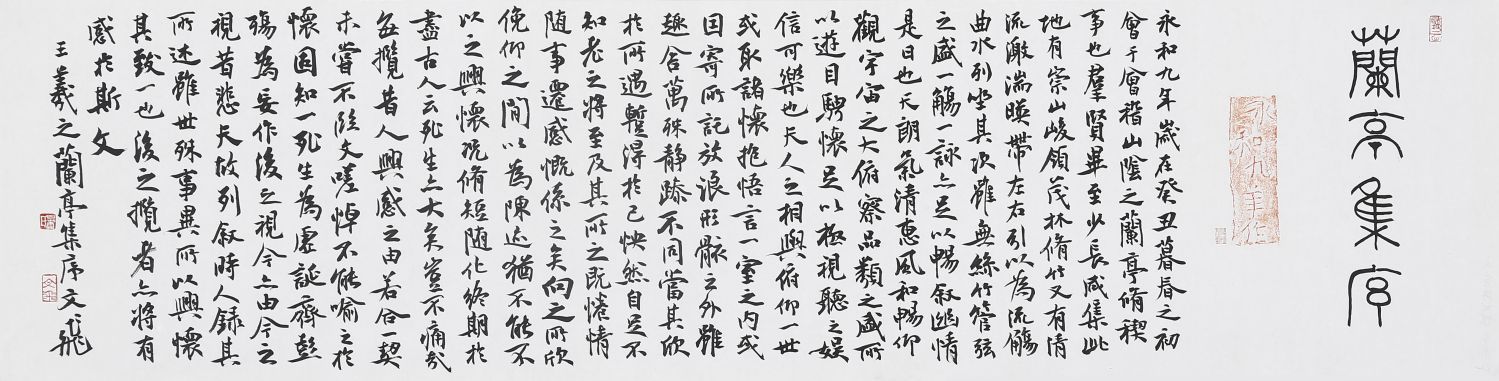 蘭亭集序
永和九年
永和九年歲在癸丑暮春之初
會于會稽山陰之蘭亭脩稧
事也羣賢畢至少長咸集此
地有崇山峻領茂林脩竹又有清
流激湍暎帶左右引以為流觴
曲水列坐其次雖無絲竹管弦
之盛一觴一詠亦足以暢敘幽情
是日也天朗氣清惠風和暢仰
觀宇宙之大俯察品類之盛所
以遊目騁懷足以極視聽之娛
信可樂也夫人之相與俯仰一世
或取諸懷抱悟言一室之內或
因寄所託放浪形骸之外雖
趣舍萬殊靜躁不同當其欣
於所遇暫得於己怏然自足不
知老之將至及其所之既惓情
隨事遷感慨係之矣向之所欣
俛仰之間以為陳迹猶不能不
以之興懷況脩短隨化終期於
盡古人云死生亦大矣豈不痛哉
每攬昔人興感之由若合一契
未嘗不臨文嗟悼不能喻之於
懷固知一死生為虛誕齊彭
殤為妄作後之視今亦由今之
視昔悲夫故列叙時人錄其
所述雖世殊事異所以興懷
其致一也後之攬者亦將有
感於斯文
王羲之蘭亭集序文飛